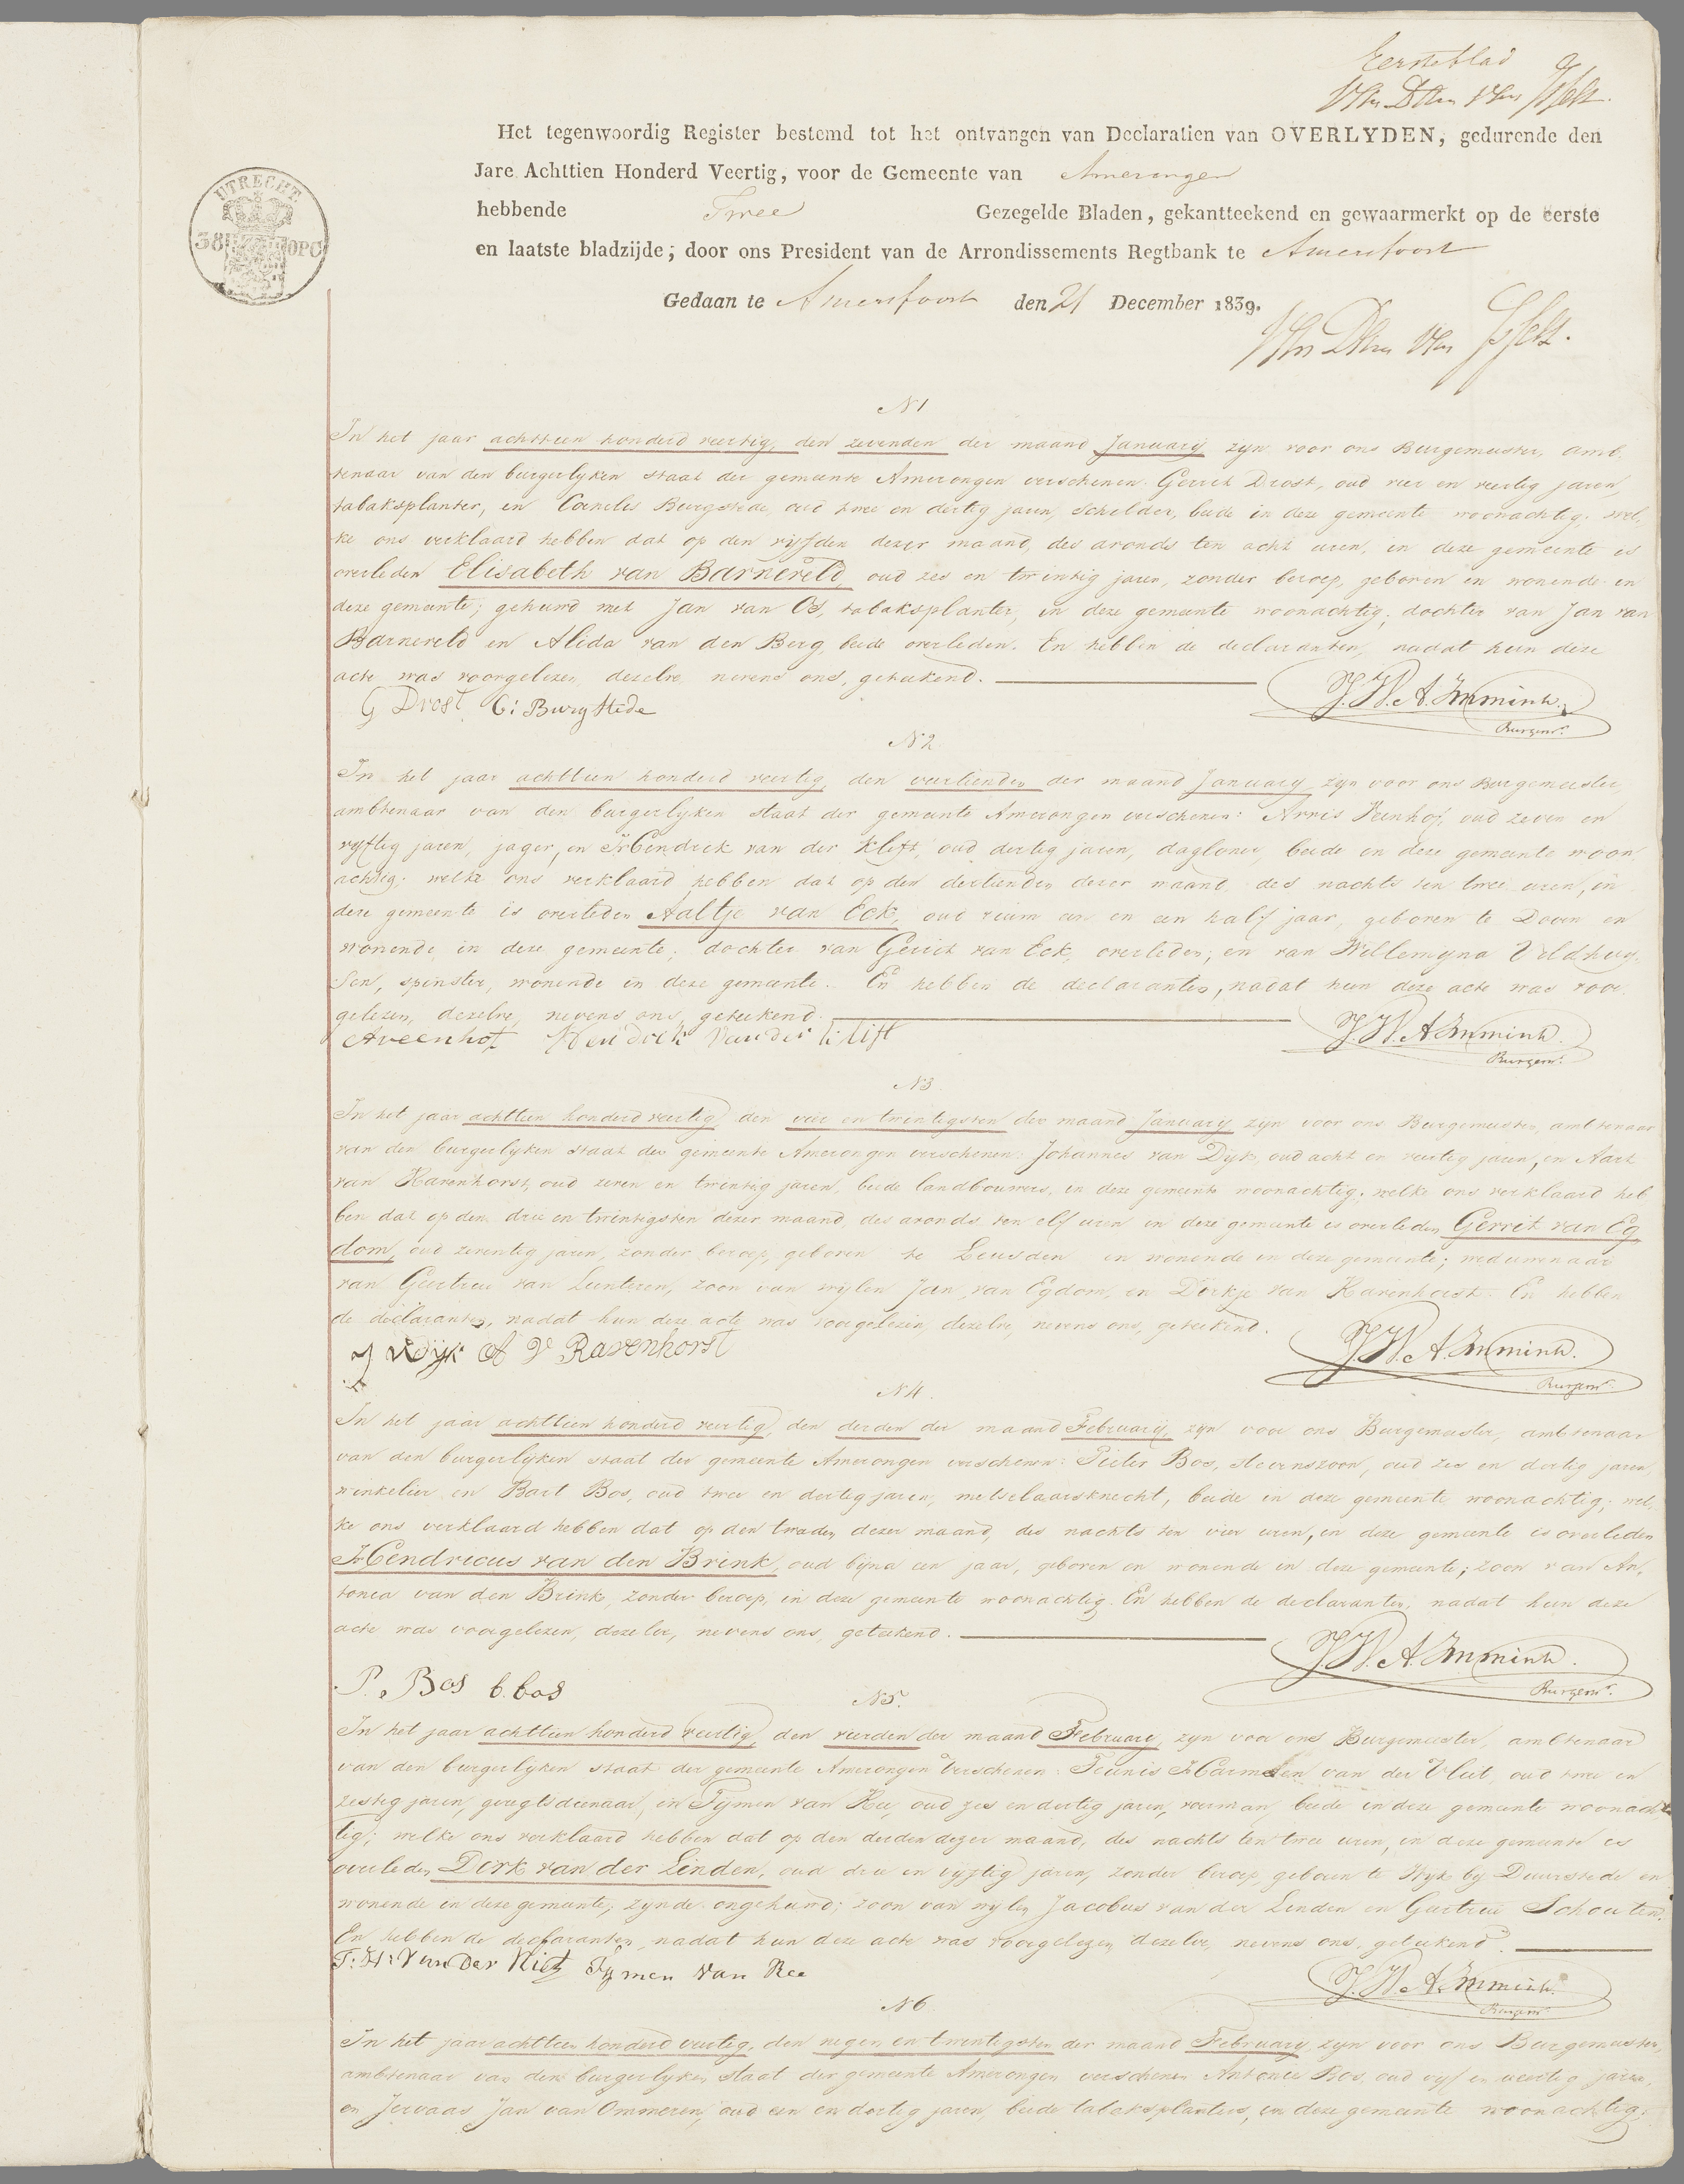 Eerste blad
UTRECHT
38 OPC
Het tegenwoordig Register bestemd tot het ontvangen van Declaratien van OVERLYDEN, gedurende den
Jare Achttien Honderd Veertig, voor de Gemeente van Amerongen
hebbende Twee Gezegelde Bladen, gekantteekend en gewaarmerkt op de eerste
en laatste bladzijde; door ons President van de Arrondissements Regtbank te Amersfoort
Gedaan te Amersfoort den 21 December 1839.
N 1
In het jaar achttien honderd veertig, den zevenden der maand January zyn voor ons Burgemeester, amb-
tenaar van den burgerlyken staat der gemeente Amerongen verschenen Gerrit Drost, oud vier en veertig jaren,
tabaksplanter, en Cornelis Burgstede, oud twee en dertig jaren, schilder, beide in deze gemeente woonachtig; wel-
ke ons verklaard hebben dat op den vyfden dezer maand, des avonds ten acht uren, in deze gemeente is
overleden Elisabeth van Barneveld, oud zes en twintig jaren, zonder beroep, geboren en wonende in
deze gemeente; gehuwd met Jan van Os, tabaksplanter, in deze gemeente woonachtig; dochter van Jan van
Barneveld en Alida van den Berg, beide overleden. En hebben de declaranten, nadat hun deze
acte was voorgelezen, dezelve nevens ons, geteekend.
G Drost C: Burgstede J.W.A. Immink.
Burgemr.
N 2.
In het jaar achttien honderd veertig, den veertienden der maand January zyn voor ons Burgemeester,
ambtenaar van den burgerlyken staat der gemeente Amerongen verschenen: Arnis Veenhof, oud zeven en
vyftig jaren, jager, en Hendrik van der Klift, oud dertig jaren, daglooner, beide in deze gemeente woon-
achtig; welke ons verklaard hebben dat op den dertienden dezer maand, des nachts ten twee uren, in
deze gemeente is overleden Aaltje van Eck, oud ruim een en een half jaar, geboren te Doorn en
wonende in deze gemeente; dochter van Gerrit van Eck, overleden; en van Willemyna Veldhuy-
sen, spinster, wonende in deze gemeente. En hebben de declaranten, nadat hun deze acte was voor-
gelezen, dezelve, nevens ons, geteekend.
AVeenhof Hendrik van der Klift J.W.A. Immink.
Burgemr.
N 3
In het jaar achttien honderd veertig, den vier en twintigsten der maand January zyn voor ons Burgemeester, ambtenaar
van den burgerlyken staat der gemeente Amerongen verschenen: Johannes van Dyk, oud acht en veertig jaren, en Aart
van Ravenhorst, oud zeven en twintig jaren, beide landbouwers, in deze gemeente woonachtig; welke ons verklaard heb-
ben dat op den drie en twintigsten dezer maand, des avonds ten elf uren in deze gemeente is overleden Gerrit van Eg
dom, oud zeventig jaren, zonder beroep, geboren te Leusden en wonende in deze gemeente; weduwenaar
van Geertrui van Lunteren, zoon van wylen Jan van Egdom, en Dirkje van Ravenhorst. En hebben
de declaranten, nadat hun deze acte was voorgelezen, dezelve, nevens ons, geteekend.
J v Dijk A V Ravenhorst J.W.A. Immink.
Burgemr.
N 4.
In het jaar achttien honderd veertig, den derden der maand February, zyn voor ons Burgemeester, ambtenaar
van den burgerlyken staat der gemeente Amerongen verschenen: Pieter Bos, Stevenszoon, oud zes en dertig jaren,
winkelier, en Bart Bos, oud twee en dertig jaren, metselaarsknecht, beide in deze gemeente woonachtig; wel-
ke ons verklaard hebben dat op den tweeden dezer maand, des nachts ten vier uren, in deze gemeente is overleden
Hendricus van den Brink, oud byna een jaar, geboren en wonende in deze gemeente; zoon van An-
tonia van den Brink, zonder beroep, in deze gemeente woonachtig. En hebben de declaranten, nadat hun deze
acte was voorgelezen, dezelve, nevens ons, geteekend.
P. Bos b. bos J.W.A. Immink.
Burgemr.
N 5.
In het jaar achttien honderd veertig, den vierden der maand February, zyn voor ons Burgemeester, ambtenaar
van den burgerlyken staat der gemeente Amerongen verschenen: Teunis Harmsen van der Vliet, oud twee en
zestig jaren, geregtsdienaar, en Tymen van Ree, oud zes en dertig jaren, voerman, beide in deze gemeente woonach-
tig; welke ons verklaard hebben dat op den derden dezer maand, des nachts ten twee uren, in deze gemeente is
overleden Dirk van der Linden, oud drie en vyftig jaren, zonder beroep, geboren te Wyk by Duurstede en
wonende in deze gemeente, zynde ongehuwd; zoon van wylen Jacobus van der Linden en Geertrui Schouten.
En hebben de declaranten, nadat hun deze acte was voorgelezen, dezelve, nevens ons, geteekend.
T: H: van der Vliet Tymen van Ree J.W.A. Immink.
Burgemr.
N 6
In het jaar achttien honderd veertig, den negen en twintigsten der maand February zyn voor ons Burgemeester,
ambtenaar van den burgerlyken staat der gemeente Amerongen verschenen Antonie Bos, oud vyf en veertig jaren,
en Jervaas Jan van Ommeren, oud een en dertig jaren, beide tabaksplanters, in deze gemeente woonachtig;